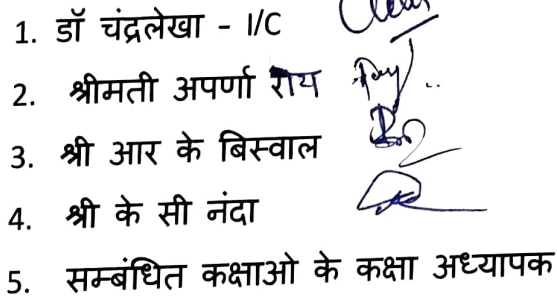 1. डॉ चंद्रलेखा - I/C
2. श्रीमती अपर्णा राय
3. श्री आर के बिस्वाल
4. श्री के सी नंदा
5. सम्बंधित कक्षाओ के कक्षा अध्यापक